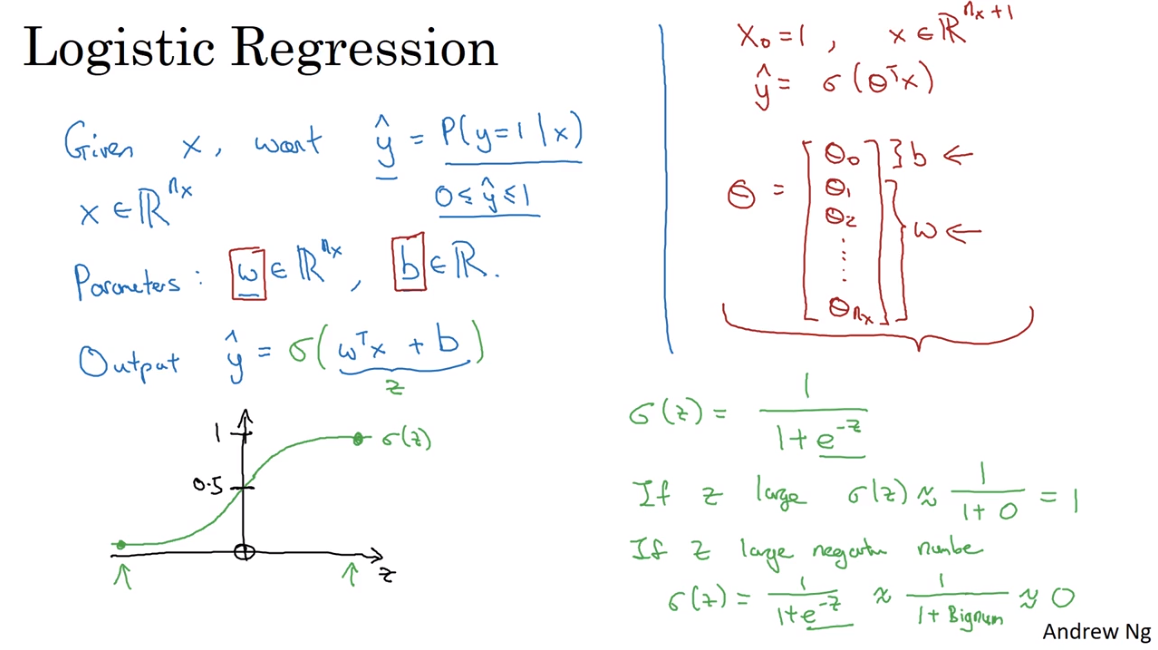 Logistic Regression
Given x, want ŷ = P(y=1|x)
0 ≤ ŷ ≤ 1
x ∈ ℝ^{n_x}
Parameters: w ∈ ℝ^{n_x}, b ∈ ℝ.
Output ŷ = σ(w^T x + b)
z
1
σ(z)
0.5
z
x_0 = 1, x ∈ ℝ^{n_x+1}
ŷ = σ(θ^T x)
θ = [θ_0 } b ←
θ_1
θ_2 } w ←
⋮
θ_{n_x}]
σ(z) = 1/(1+e^{-z})
If z large σ(z) ≈ 1/(1+0) = 1
If z large negative number
σ(z) = 1/(1+e^{-z}) ≈ 1/(1+Bignum) ≈ 0
Andrew Ng